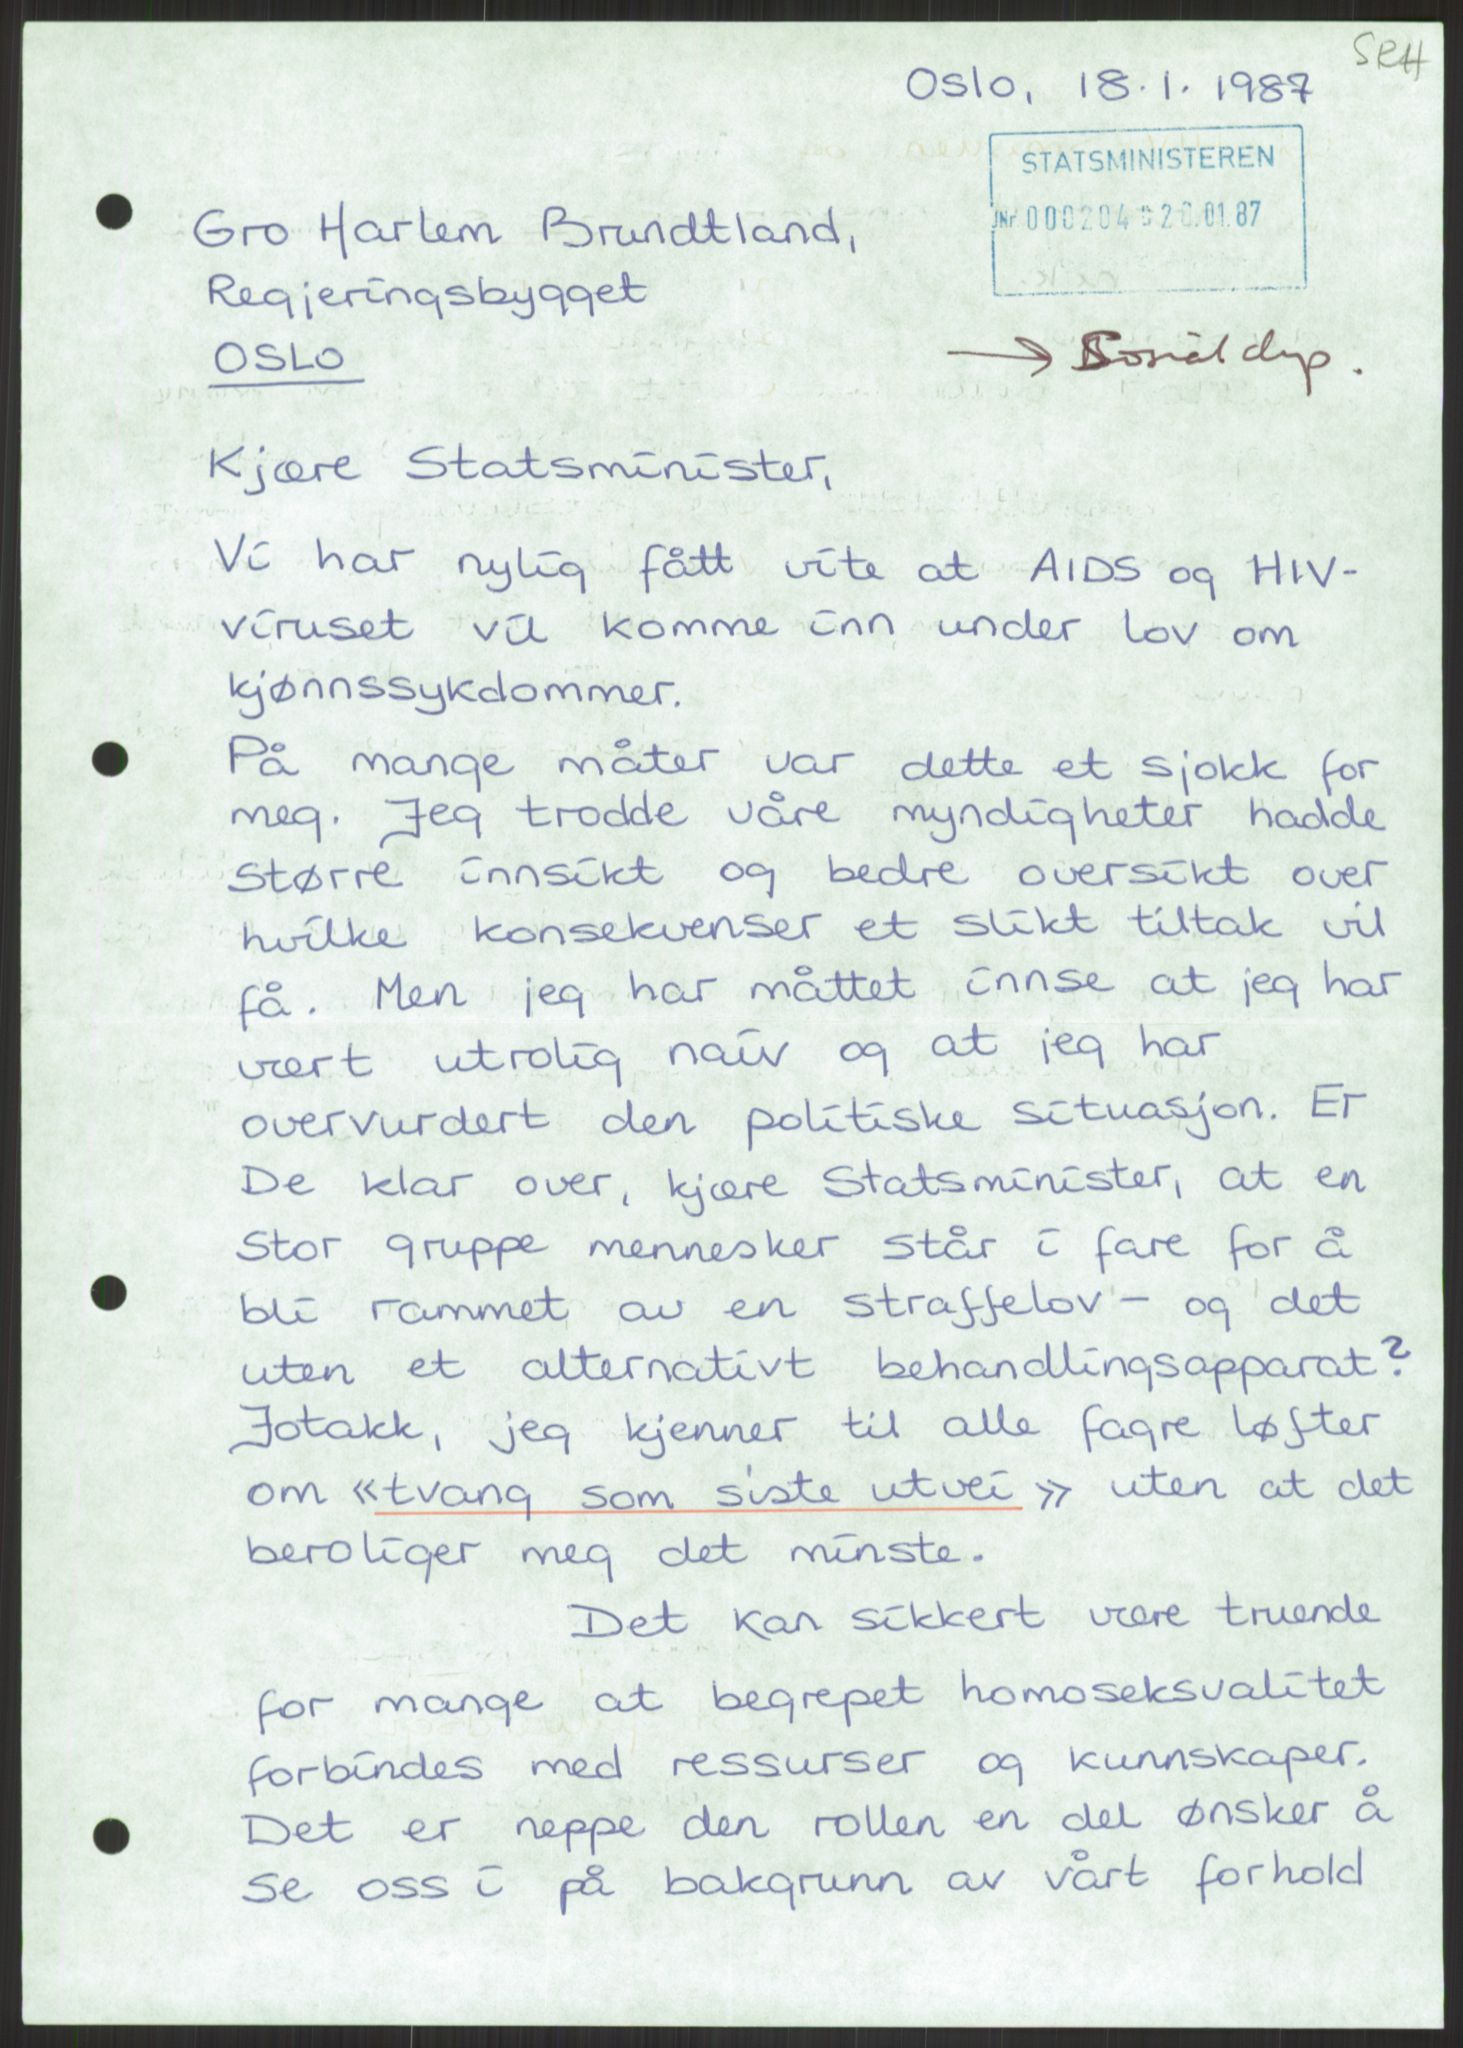 SRH
Oslo, 18.1.1987
STATSMINISTEREN
JNr 000204 20.01.87
Gro Harlem Brundtland,
Regjeringsbygget
OSLO
→ Sosialdep.
Kjære Statsminister,
Vi har nylig fått vite at AIDS og HIV-
viruset vil komme inn under lov om
kjønnssykdommer.
På mange måter var dette et sjokk for
meg. Jeg trodde våre myndigheter hadde
større innsikt og bedre oversikt over
hvilke konsekvenser et slikt tiltak vil
få. Men jeg har måttet innse at jeg har
vært utrolig naiv og at jeg har
overvurdert den politiske situasjon. Er
De klar over, kjære Statsminister, at en
stor gruppe mennesker står i fare for å
bli rammet av en straffelov - og det
uten et alternativt behandlingsapparat?
Jotakk, jeg kjenner til alle fagre løfter
om «tvang som siste utvei» uten at det
beroliger meg det minste.
Det kan sikkert være truende
for mange at begrepet homoseksualitet
forbindes med ressurser og kunnskaper.
Det er neppe den rollen en del ønsker å
se oss i på bakgrunn av vårt forhold